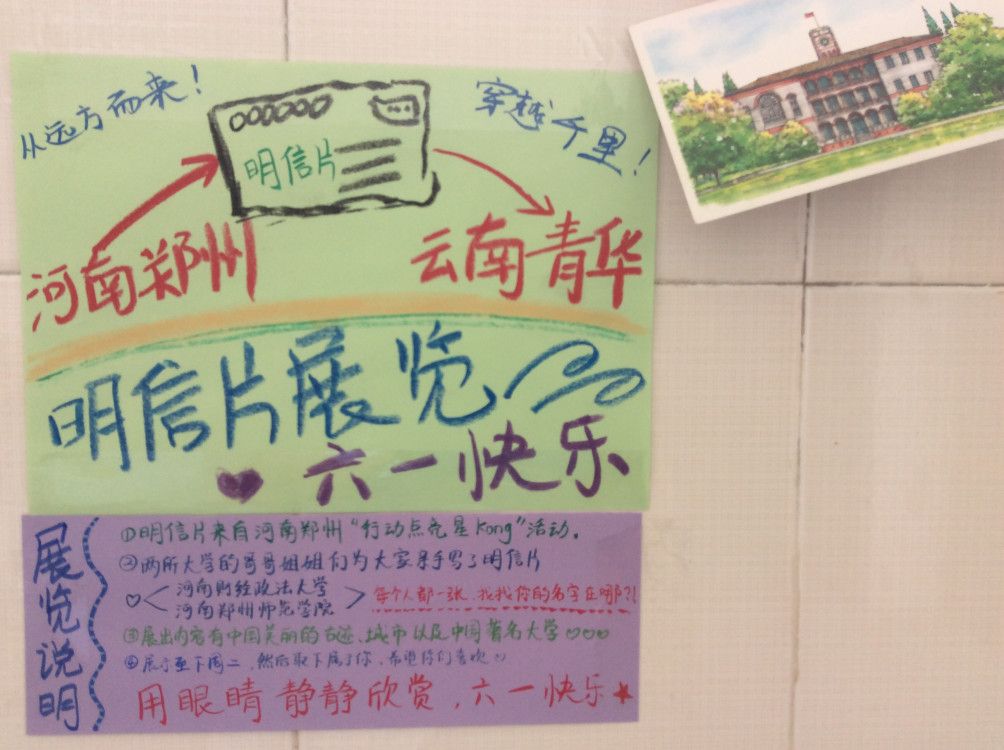 从远方而来！
穿越千里！
明信片
河南郑州
云南青华
明信片展览
六一快乐
展览说明
①明信片来自河南郑州“行动点亮星Kong”活动。
②两所大学的哥哥姐姐们为大家亲手写了明信片
河南财经政法大学
河南郑州师范学院
每个人都一张,找找你的名字在哪?!
③展出内容有中国美丽的古迹、城市以及中国著名大学
④展示至下周二,然后取下属于你,希望你们喜欢
用眼睛静静欣赏,六一快乐